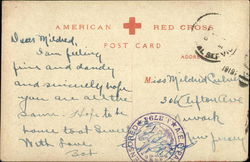 AMERICAN RED CROSS
POST CARD
Dear Mildred,
I am feeling
fine and dandy
and sincerely hope
you are all the
same. Hope to be
home to at
With Love
ADDRESS
Miss Mildred
306 Clifton Ave
Newark
New Jersey